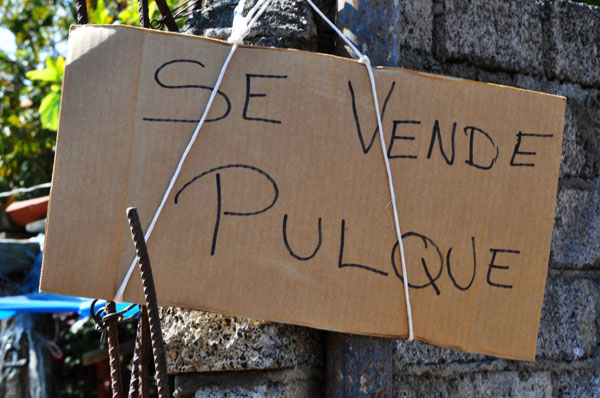 SE VENDE
PULQUE